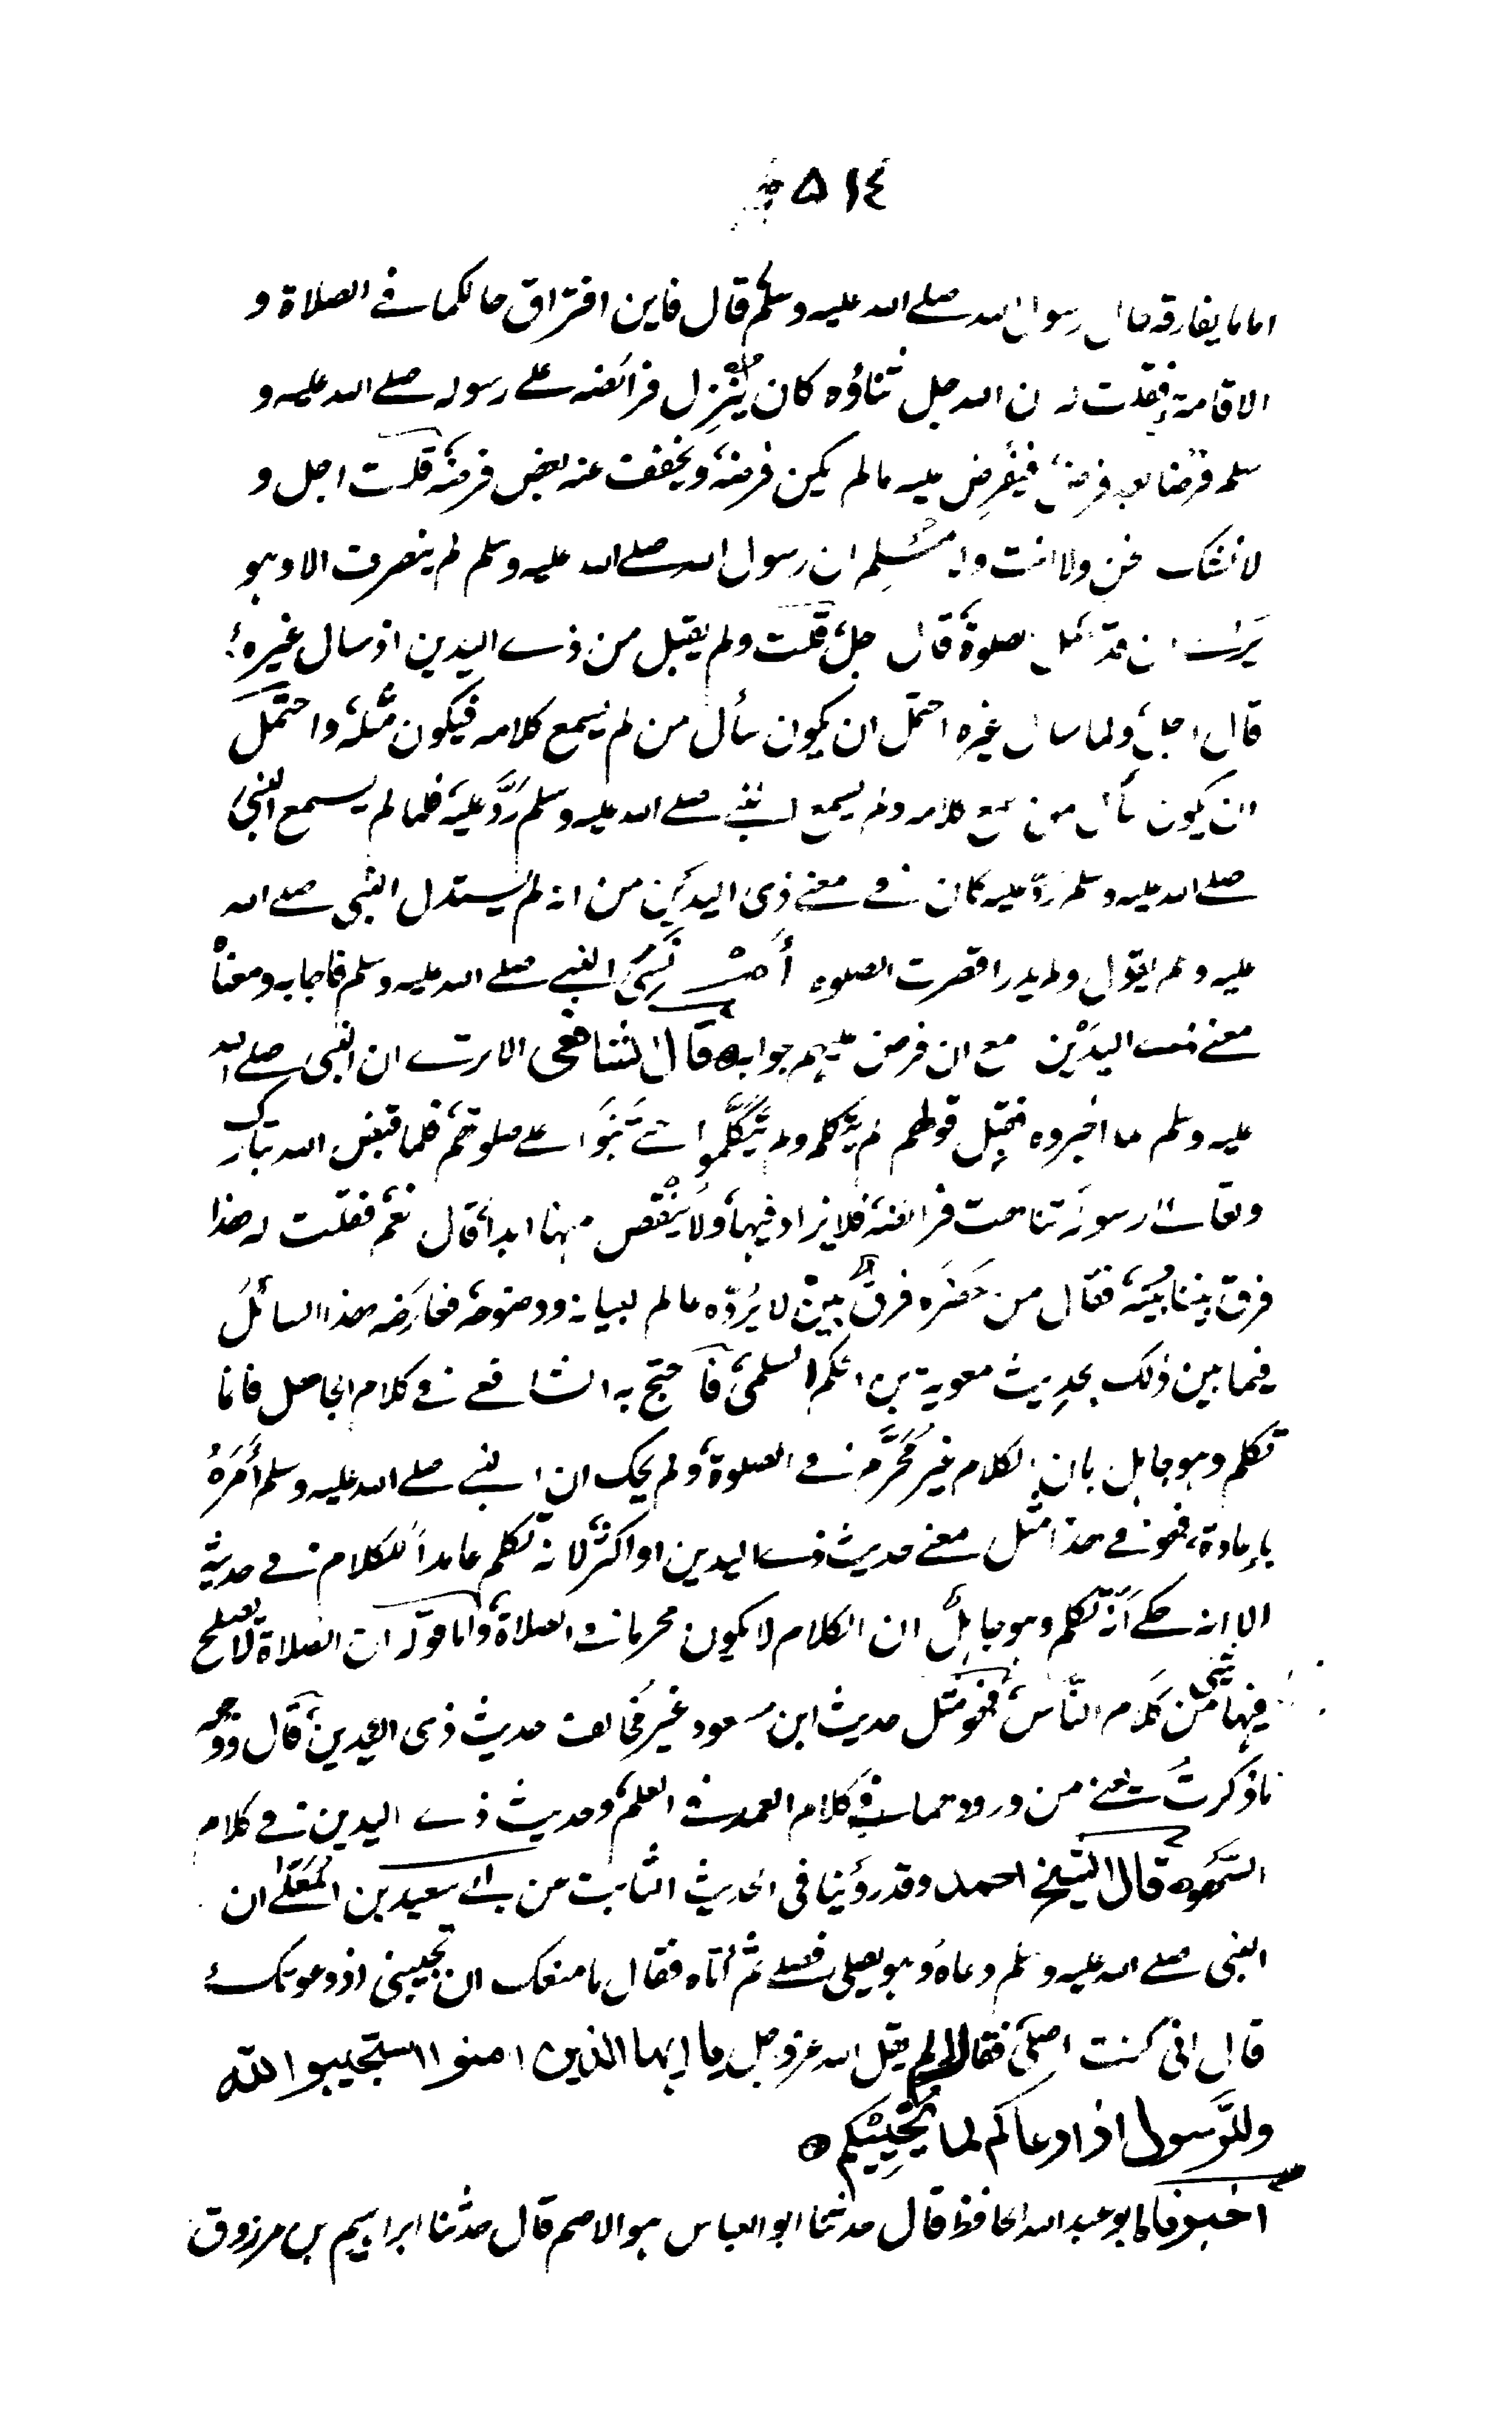 ٥١٤
اماما يفارقه حال رسول الله صلے الله عليه وسلم قال فاين افتراق حالكما في الصلاة و
الاقامة فقلت له ان الله جل ثناؤه كان يُنْزِل فرائضه علے رسوله صلے الله عليه و
سلم فرضا بعد فرض فيَفْرِض عليه مالم يكن فرضه ويخفف عنه بعض فرضه قلت اجل و
لا نشك نحن ولا انت ولا مُسْلِم ان رسول الله صلے الله عليه وسلم لم ينصرف الا وهو
يَرىٰ ان قد اكمل الصلوة قال اجل قلت ولم يقبل من ذے اليدين اذ سال غيره
قال اجل ولما سال غيره احتمل ان يكون سأل من لم يسمع كلامه فيكون مثله واحتمل
ان يكون سأل من سمع كلامه ولم يسمع النبے صلے الله عليه وسلم رَدَّ عليه فلما لم يسمع النبي
صلے الله عليه وسلم رَدّ عليه كان فے معنے ذى اليدين من انه لم يستدل النبى صلے الله
عليه وسلم بقول ولم يدر اقصرت الصلوة أم نَسِىَ النبے صلے الله عليه وسلم فاجابه ومعناه
معنے ذے اليَدَيْن مع ان فرض عليهم جوابه قال الشافعى الا ترے ان النبى صلے الله
عليه وسلم لما اخبروه فقبِل قولهم لم يتكلم ولم يَتَكَلَّموا حتے بَنَوا علے صلوتهم فلما قبض الله تبارك
وتعالے رسوله تناهت فرائضه فلا يزاد فيها ولا يُنْقَص منها ابدا قال نعم فقلت له هذا
فرق بيننا بينه فقال من حَضَرَه فرقٌ بَيِّنٌ لا يَرُدّه عالم لبيانه ووضوحه فعارَضه هذا السائلُ
فيما بين ذلك بحديث معوية بن الحكم السلمى فاحتج به الشافعے فے كلام الجاهل فانه
تكلم وهو جاهل بان الكلام غير مُحَرَّم فے الصلوة ولم يحك ان النبے صلے الله عليه وسلم أَمَرَهُ
بإعادة فهو فے هذا مثل معنے حديث ذے اليدين او اكثر لانه تكلم عامداً للكلام فے حديثه
الا انه حكے أنّه تكلم وهو جاهلٌ ان الكلام لا يكون محرما فے الصلاة واما قوله ان الصلاة لا يصلح
فيها شئ من كلام النّاس فهو مثل حديث ابن مسعود غير مُخالف حديث ذى اليدين قال ووجه
ما ذكرتُ يعنے من ورودهما فے كلام العمد فے العلم وحديث ذے اليدين فے كلام
السَّهوه قال الشيخ احمد وقد روينا فى الحديث الثابت عن ابے سعيد بن المُعَلّے ان
النبى صلے الله عليه وسلم دعاه وهو يصلى فصلے ثم أتاه فقال ما منعك ان تجيبنى اذ دعوتك
قال انى كنت اصلى فقال الم يقل الله عز وجل يا ايها الذين امنوا استجيبوا لله
وللرَّسول اذا دعاكم لما يُحْيِيْكم
اخبرنا ابو عبد الله الحافظ قال حدثنا ابو العباس هو الاصم قال حدثنا ابراهيم بن مرزوق